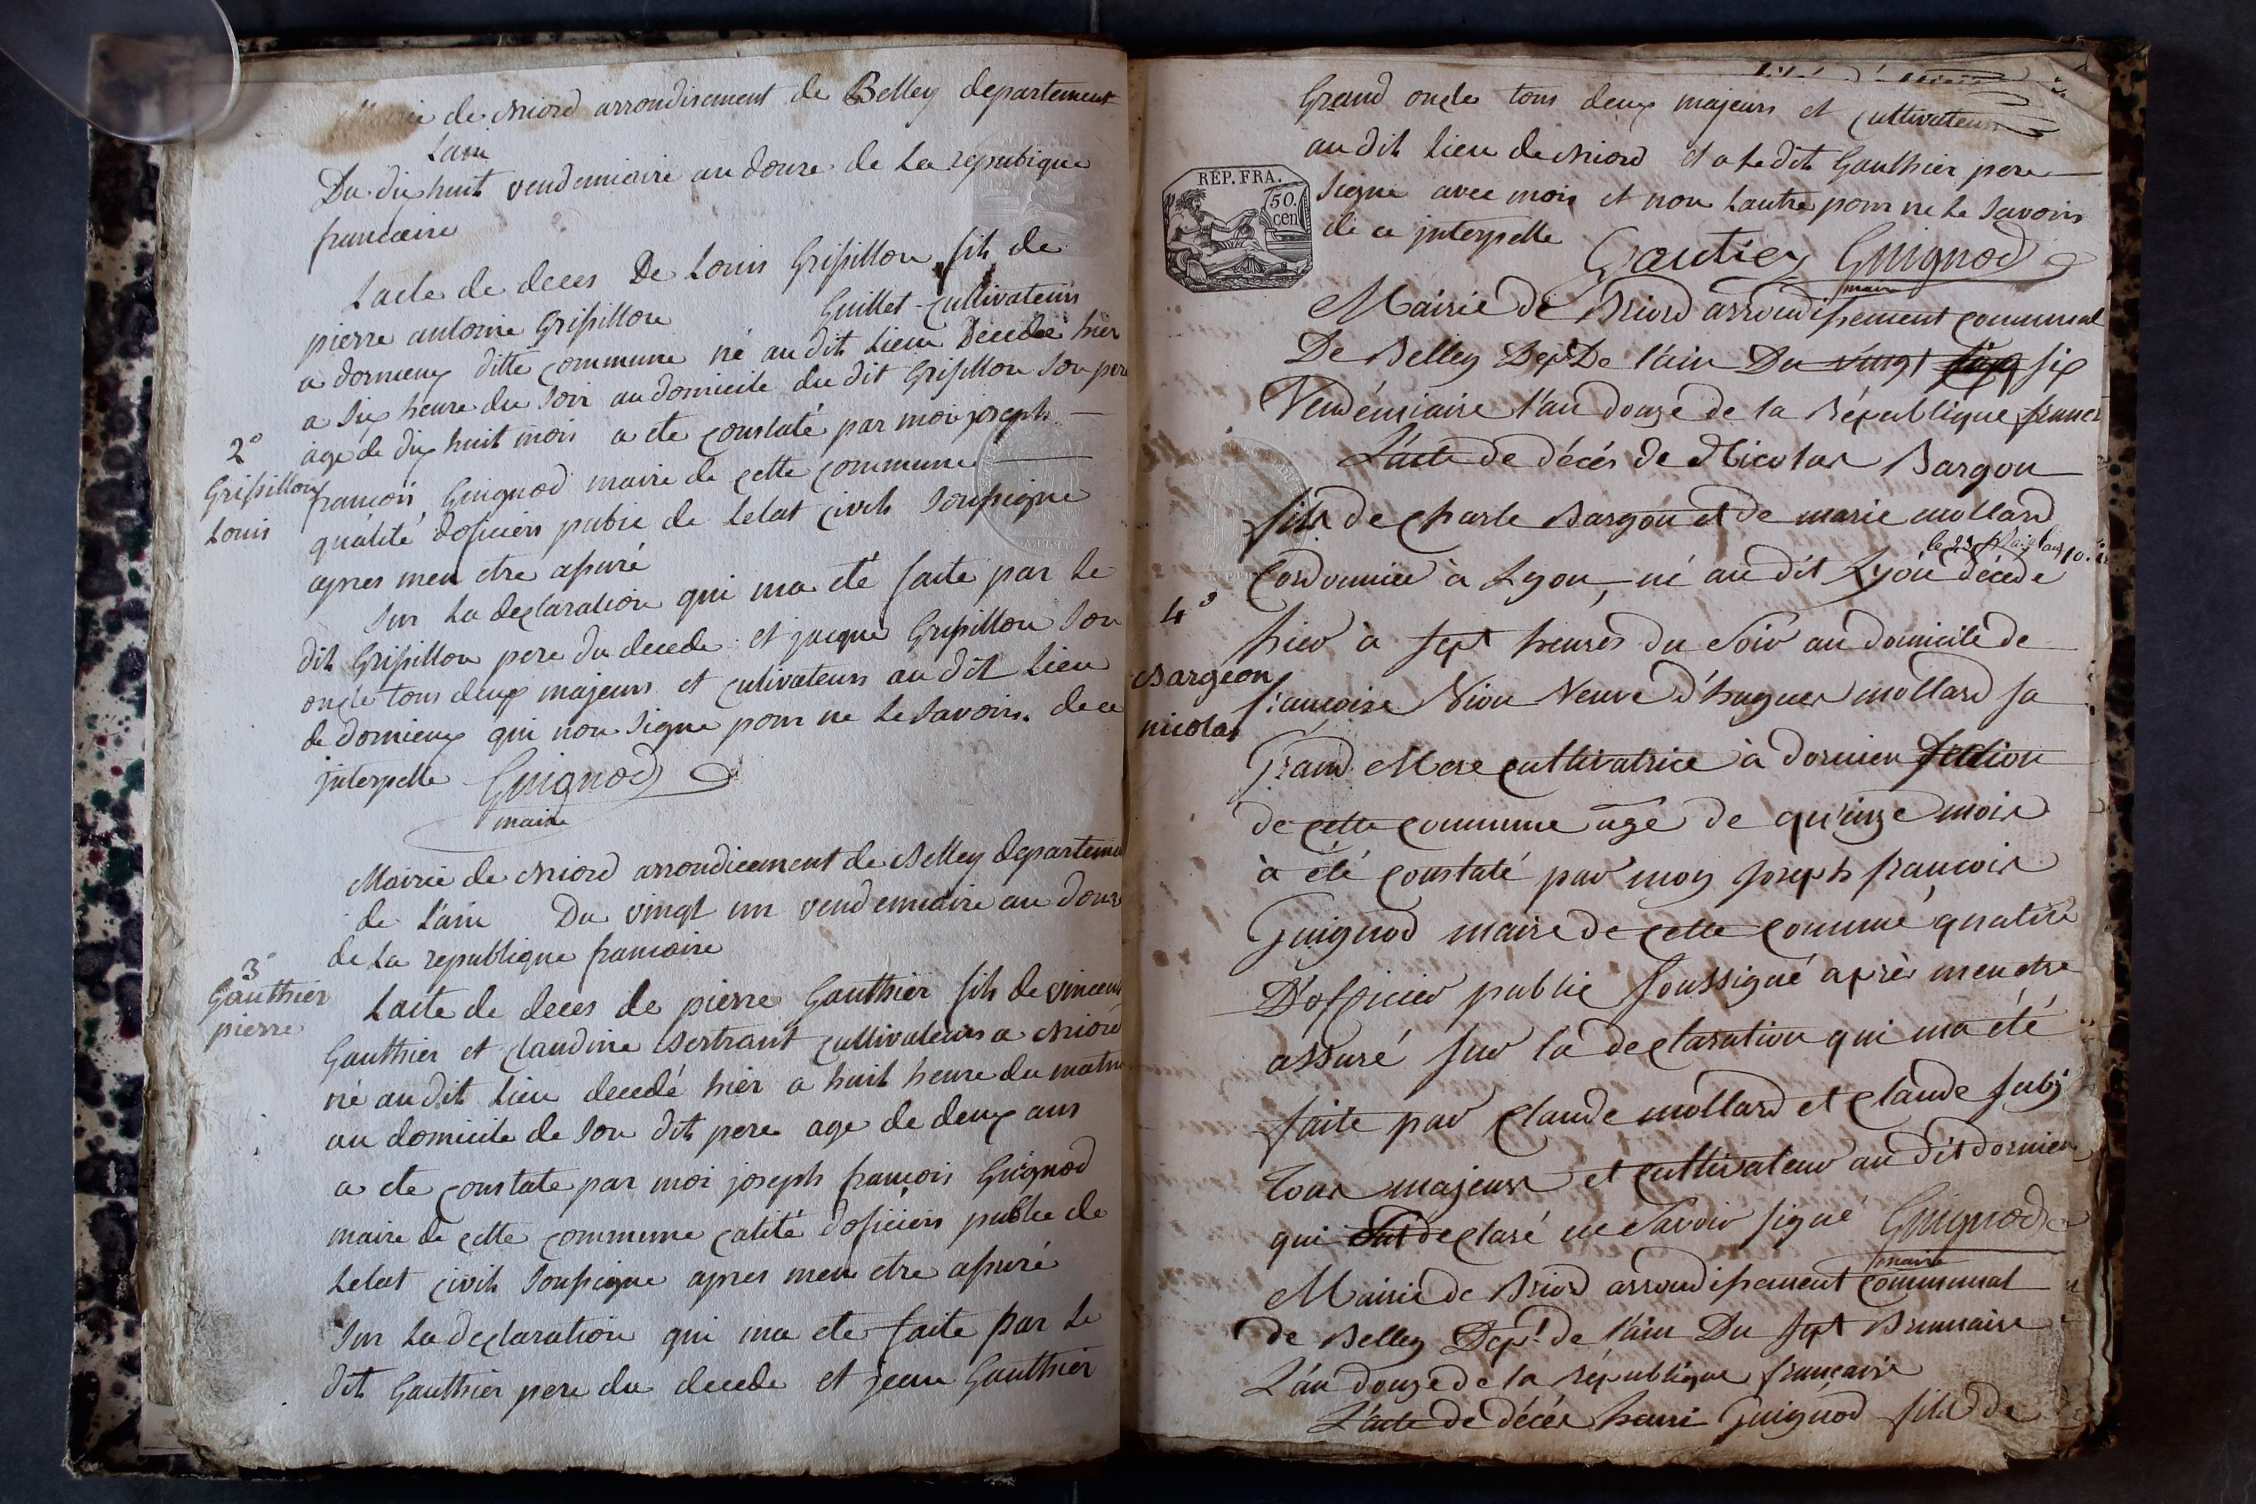 Mairie de Briord arrondisement de Belley departement
Lain
Du dix huit vendemiaire an douze de la republique
francaise
Lacte de deces De Louis Grissillon fils de
pierre antoine Grissillon Guillet cultivateurs
a dornieux ditte commune né au dit Lieu Decedée hier
a six heure du soir au domicile du dit Grisillon son pere
age de dix huit mois a ete constaté par moi joseph
2°
Grissillon
Louis
francois Guignod maire de cette commune
qualité doficiers public de Letat civils soussigne
apres meu etre assuré
sur La declaration qui ma eté faite par Le
dit Grissillon pere du decede et jacque Grissillon son
oncle tous deux majeurs et cutivateurs au dit Lieu
de dornieux qui non signe pour ne Le savoirs de ce
jnterpelle Guignod
maire
Mairie de Briord arrondicement de Belley departement
de Lain Du vingt un vendemiaire an douze
de La republique francaise
3°
Gauthier
pierre
Lacte de deces de pierre Gauthier fils de vincent
Gauthier et claudine Bertrant cultivateurs a Briord
né au dit Lieu decedé hier a huit heure du matin
au domicile de son dit pere age de deux ans
a ete constate par moi joseph francois Guignod
maire de cette commune calité doficiers public de
Letat civils soussigne apres meu etre assuré
sur La declaration qui ma ete faite par Le
dit Gauthier pere du decede et jean Gauthier
Grand oncle tous deux majeurs et cultivateurs
au dit Lieu de Briord et a Ledit Gauthier pere
signe avec mois et non Lautre pour ne Le savoirs
de ce jnterpelle
REP. FRA.
50.
cen
Gautier Guignod
maire
Mairie de Briord arrondissement communal
De Belley Dep De l'ain Du vingt six
Vendémiaire l'an douze de la République france
L'acte de décés de Nicolas Bargon
fils de charle Bargon et de marie mollard
le 23 an 10
Cordonnier à Lyon, né au dit Lyon décede
4°
Bargeon
nicolas
hier à sept heures du Soir au domicile de
francoise Niou Veuve d'hugues mollard sa
Grand Mere cultivatrice à dornieu section
de cette commune agé de qu'inze mois
à été constaté par moy joseph francois
Guignod maire de cette commune qualité
D'officier public soussigné après meu etre
assuré sur la declaration qui ma été
faite par claude mollard et claude juby
tous majeurs et cultivateur au dit dornieu
qui declaré ne Savoir signé Guignod
maire
Mairie de Briord arrondissement communal
de Belley Dept de l'ain Du sept Brumaire
L'an douze de la république française
L'acte de décés henri Guignod fils de